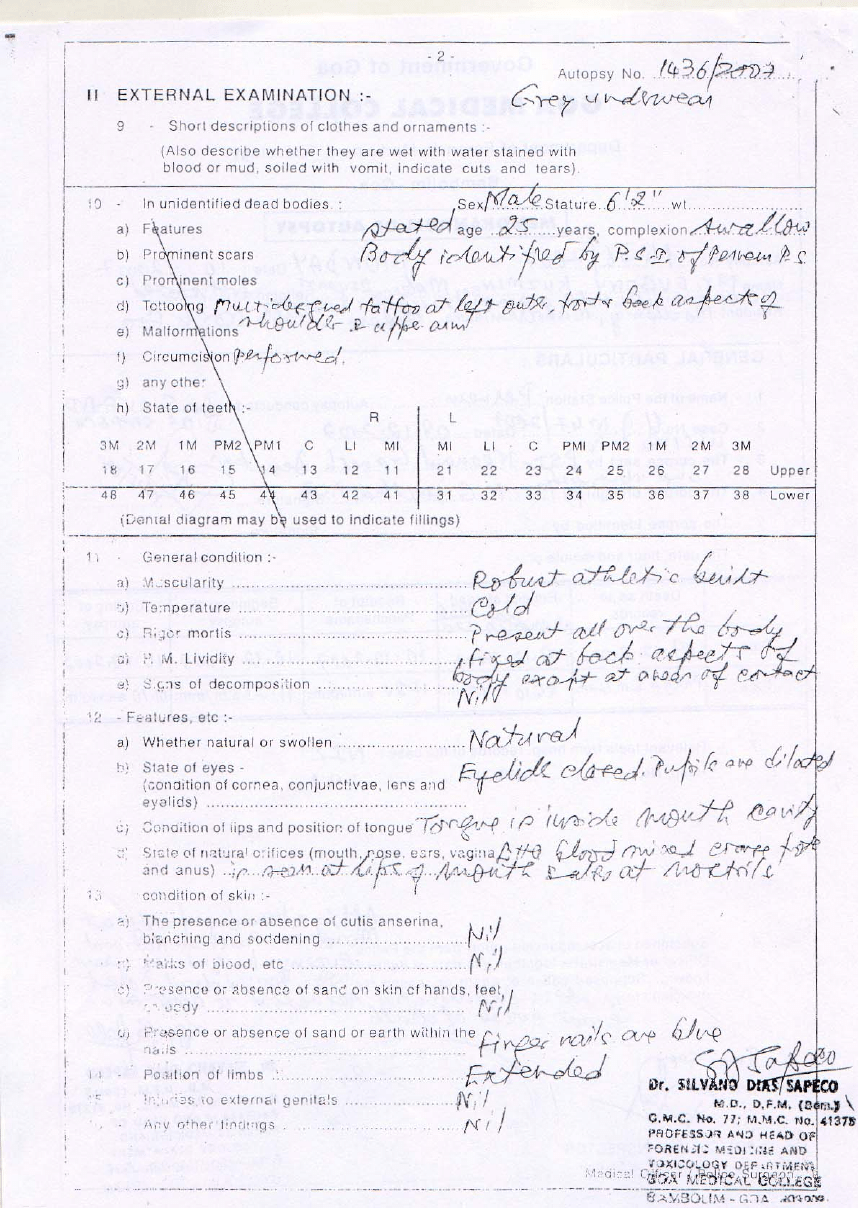 - 2 -
Autopsy No. 1436/2007
II EXTERNAL EXAMINATION :-
Grey underwear
9 - Short descriptions of clothes and ornaments :-
(Also describe whether they are wet with water stained with
blood or mud, soiled with vomit, indicate cuts and tears).
10 - In unidentified dead bodies. : Sex Male Stature 6'2" wt.
a) Features stated age 25 years, complexion swallow
b) Prominent scars Body identified by P.S.I. of Pernem P.S.
c) Prominent moles
d) Tottooing Multidesigned tattoo at left outer, back aspects of
shoulder & arm
e) Malformations
f) Circumcision performed.
g) any other
h) State of teeth :-
R L
3M 2M 1M PM2 PM1 C LI MI MI LI C PMI PM2 1M 2M 3M
18 17 16 15 14 13 12 11 21 22 23 24 25 26 27 28 Upper
48 47 46 45 44 43 42 41 31 32 33 34 35 36 37 38 Lower
(Dental diagram may be used to indicate fillings)
11 - General condition :-
a) Muscularity Robust athletic built
b) Temperature Cold
c) Rigor mortis Present all over the body
d) P.M. Lividity fixed at back aspects of
body except at areas of contact
e) Signs of decomposition Nil
12 - Features, etc :-
a) Whether natural or swollen Natural
b) State of eyes - Eyelids closed. Pupils are dilated
(condition of cornea, conjunctivae, lens and
eyelids)
c) Condition of lips and position of tongue Tongue is inside mouth cavity
d) State of natural orifices (mouth, nose, ears, vagina blood mixed
and anus) is seen at lips of mouth & also at nostrils
13 condition of skin :-
a) The presence or absence of cutis anserina,
blanching and soddening Nil
b) Marks of blood, etc Nil
c) Presence or absence of sand on skin of hands, feet,
body Nil
d) Presence or absence of sand or earth within the
nails finger nails are blue
14 Position of limbs Extended
15 Injuries to external genitals Nil
Any other findings Nil
Dr. SILVANO DIAS SAPECO
M.D., D.F.M. (Bom.)
G.M.C. No. 77; M.M.C. No. 41375
PROFESSOR AND HEAD OF
FORENSIC MEDICINE AND
TOXICOLOGY DEPARTMENT
Medical Officer / Police Surgeon
GOA MEDICAL COLLEGE
BAMBOLIM - GOA